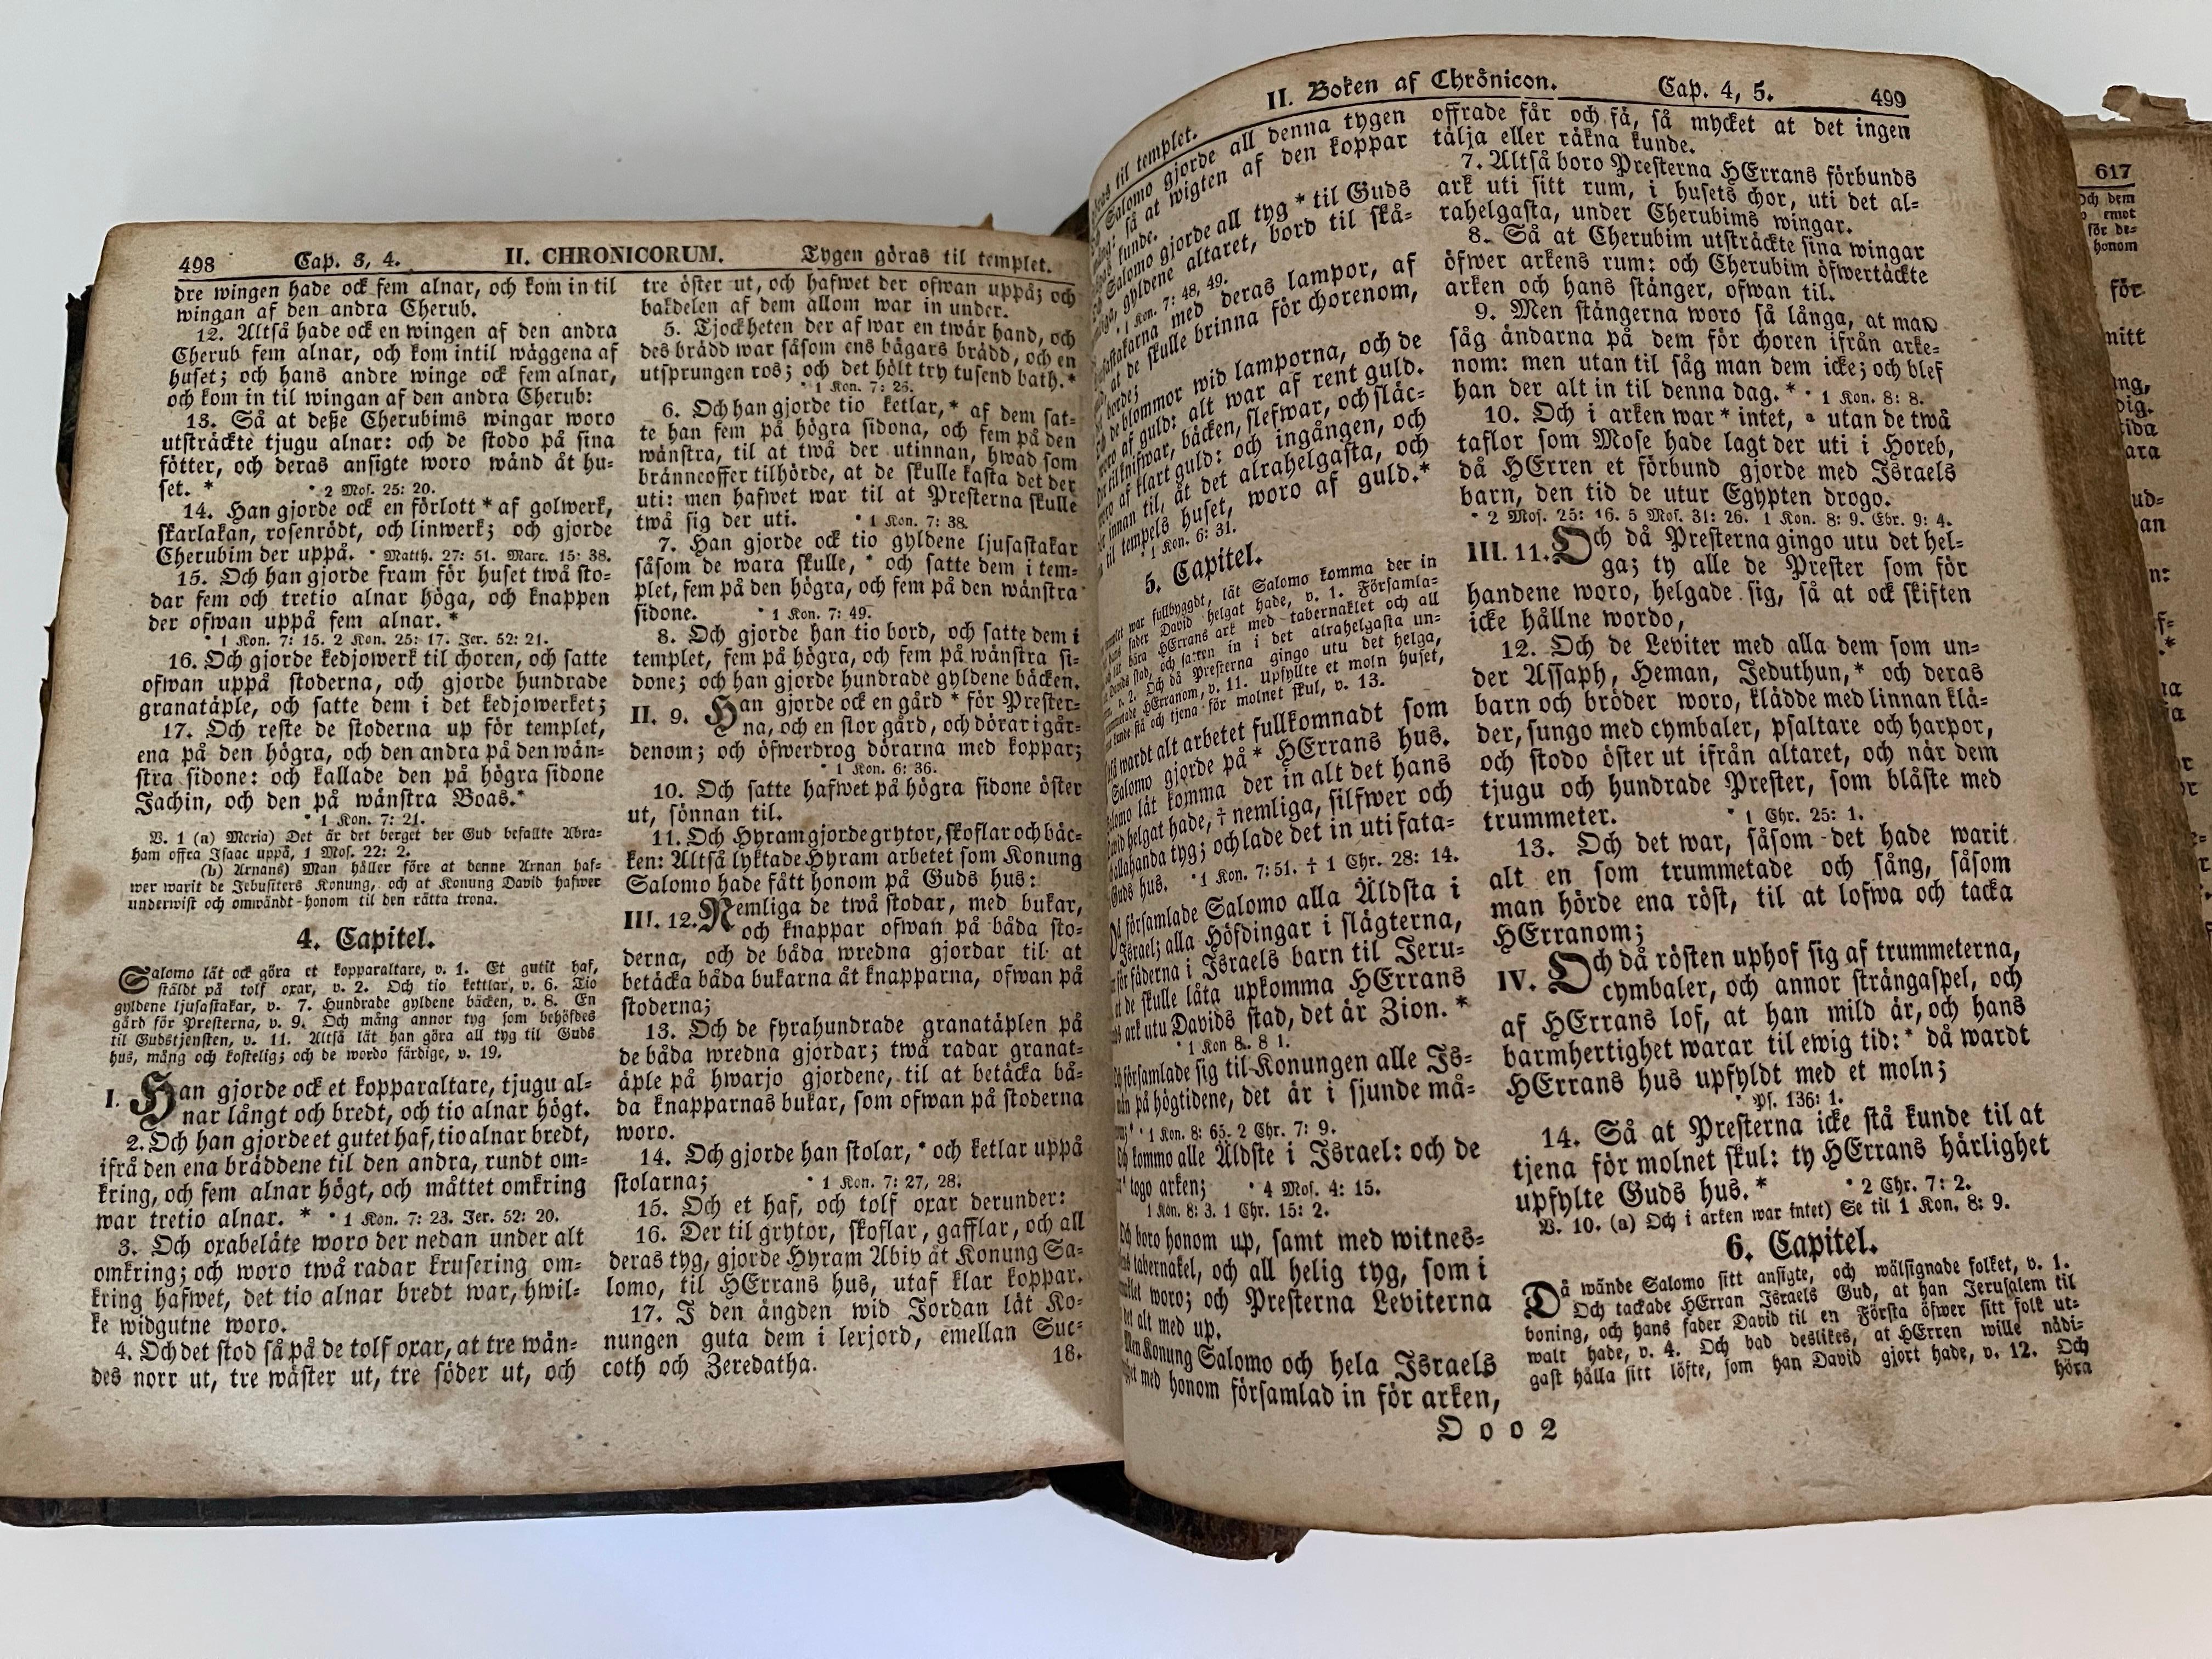 498 Cap. 3, 4. II. CHRONICORUM. Tygen göras til templet.
dre wingen hade ock fem alnar, och kom in til
wingan af den andra Cherub.
12. Altså hade ock en wingen af den andra
Cherub fem alnar, och kom intil wäggena af
huset; och hans andre winge ock fem alnar,
och kom in til wingan af den andra Cherub:
13. Så at deße Cherubims wingar woro
utsträckte tjugu alnar: och de stodo på sina
fötter, och deras ansigte woro wänd åt hu-
set. * * 2 Mos. 25: 20.
14. Han gjorde ock en förlott * af golwerk,
skarlakan, rosenrödt, och linwerk; och gjorde
Cherubim der uppå. * Matth. 27: 51. Marc. 15: 38.
15. Och han gjorde fram för huset twå sto-
dar fem och tretio alnar höga, och knappen
der ofwan uppå fem alnar. *
* 1 Kon. 7: 15. 2 Kon. 25: 17. Jer. 52: 21.
16. Och gjorde kedjowerk til choren, och satte
ofwan uppå stoderna, och gjorde hundrade
granatäple, och satte dem i det kedjowerket;
17. Och reste de stoderna up för templet,
ena på den högra, och den andra på den wän-
stra sidone: och kallade den på högra sidone
Jachin, och den på wänstra Boas.*
* 1 Kon. 7: 21.
V. 1 (a) Moria) Det är det berget der Gud befallte Abra-
ham offra Isaac uppå, 1 Mos. 22: 2.
(b) Arnans) Man håller före at denne Arnan haf-
wer warit de Jebusiters Konung, och at Konung David hafwer
underwist och omwändt honom til den rätta trona.
4. Capitel.
Salomo låt ock göra et kopparaltare, v. 1. Et gutit haf,
stäldt på tolf oxar, v. 2. Och tio kettlar, v. 6. Tio
gyldene ljusastakar, v. 7. Hundrade gyldene bäcken, v. 8. En
gård för Presterna, v. 9. Och mång annor tyg som behöfdes
til Gudstjensten, v. 11. Altså låt han göra all tyg til Guds
hus, mång och kostelig; och de wordo färdige, v. 19.
I. Han gjorde ock et kopparaltare, tjugu al-
nar långt och bredt, och tio alnar högt.
2. Och han gjorde et gutet haf, tio alnar bredt,
ifrå den ena bräddene til den andra, rundt om-
kring, och fem alnar högt, och måttet omkring
war tretio alnar. * * 1 Kon. 7: 23. Jer. 52: 20.
3. Och oxabeläte woro der nedan under alt
omkring; och woro twå radar krusering om-
kring hafwet, det tio alnar bredt war, hwil-
ke widgutne woro.
4. Och det stod så på de tolf oxar, at tre wän-
des norr ut, tre wäster ut, tre söder ut, och
tre öster ut, och hafwet der ofwan uppå; och
bakdelen af dem allom war in under.
5. Tjockheten der af war en twär hand, och
des brädd war såsom ens bägars brädd, och en
utsprungen ros; och det hölt try tusend bath.*
* 1 Kon. 7: 26.
6. Och han gjorde tio ketlar,* af dem sat-
te han fem på högra sidona, och fem på den
wänstra, til at twå der utinnan, hwad som
bränneoffer tilhörde, at de skulle kasta det der
uti: men hafwet war til at Presterna skulle
twå sig der uti. * 1 Kon. 7: 38.
7. Han gjorde ock tio gyldene ljusastakar
såsom de wara skulle, * och satte dem i tem-
plet, fem på den högra, och fem på den wänstra
sidone. * 1 Kon. 7: 49.
8. Och gjorde han tio bord, och satte dem i
templet, fem på högra, och fem på wänstra si-
done; och han gjorde hundrade gyldene bäcken.
II. 9. Han gjorde ock en gård * för Prester-
na, och en stor gård, och dörar i går-
denom; och öfwerdrog dörarna med koppar;
* 1 Kon. 6: 36.
10. Och satte hafwet på högra sidone öster
ut, sönnan til.
11. Och Hyram gjorde grytor, skoflar och bäc-
ken: Altså lyktade Hyram arbetet som Konung
Salomo hade fått honom på Guds hus:
III. 12. Nemliga de twå stodar, med bukar,
och knappar ofwan på båda sto-
derna, och de båda wredna gjordar til at
betäcka båda bukarna åt knapparna, ofwan på
stoderna;
13. Och de fyrahundrade granatäplen på
de båda wredna gjordar; twå radar granat-
äple på hwarjo gjordene, til at betäcka bå-
da knapparnas bukar, som ofwan på stoderna
woro.
14. Och gjorde han stolar, * och ketlar uppå
stolarna; * 1 Kon. 7: 27, 28.
15. Och et haf, och tolf oxar derunder:
16. Der til grytor, skoflar, gafflar, och all
deras tyg, gjorde Hyram Abiv åt Konung Sa-
lomo, til HErrans hus, utaf klar koppar.
17. I den ängden wid Jordan låt Ko-
nungen guta dem i lerjord, emellan Suc-
coth och Zeredatha.
18.
til templet. II. Boken af Chrönicon. Cap. 4, 5. 499
Salomo gjorde all denna tygen
så at wigten af den koppar
kunde.
Salomo gjorde all tyg * til Guds
gyldene altaret, bord til skå-
* 1 Kon. 7: 48, 49.
med deras lampor, af
at de skulle brinna för chorenom,
blommor wid lamporna, och de
af guld: alt war af rent guld.
knifwar, bäcken, slefwar, och släc-
af klart guld: och ingången, och
innan til, åt det alrahelgasta, och
til tempels huset, woro af guld.*
* 1 Kon. 6: 31.
5. Capitel.
war fullbyggdt, låt Salomo komma der in
fader David helgat hade, v. 1. Församla-
bära HErrans ark med tabernaklet och all
stad, och in i det alrahelgasta un-
v. 2. Och då Presterna gingo utu det helga,
HErranom, v. 11. upfyllte et moln huset,
stå och tjena för molnet skul, v. 13.
wardt alt arbetet fullkomnadt som
Salomo gjorde på * HErrans hus.
låt komma der in alt det hans
helgat hade, † nemliga, silfwer och
tyg; och lade det in uti fata-
Guds hus. * 1 Kon. 7: 51. † 1 Chr. 28: 14.
församlade Salomo alla Äldsta i
Israel; alla Höfdingar i slägterna,
fäderna i Israels barn til Jeru-
at de skulle låta upkomma HErrans
ark utu Davids stad, det är Zion. *
* 1 Kon 8. 8 1.
församlade sig til Konungen alle Is-
på högtidene, det är i sjunde må-
* 1 Kon. 8: 65. 2 Chr. 7: 9.
kommo alle Äldste i Israel: och de
togo arken; * 4 Mos. 4: 15.
1 Kon. 8: 3. 1 Chr. 15: 2.
boro honom up, samt med witnes-
tabernakel, och all helig tyg, som i
woro; och Presterna Leviterna
alt med up.
Konung Salomo och hela Israels
med honom församlad in för arken,
offrade får och fä, så mycket at det ingen
tälja eller räkna kunde.
7. Altså boro Presterna HErrans förbunds
ark uti sitt rum, i husets chor, uti det al-
rahelgasta, under Cherubims wingar.
8. Så at Cherubim utsträckte sina wingar
öfwer arkens rum: och Cherubim öfwertäckte
arken och hans stänger, ofwan til.
9. Men stängerna woro så långa, at man
såg ändarna på dem för choren ifrån arke-
nom: men utan til såg man dem icke; och blef
han der alt in til denna dag. * * 1 Kon. 8: 8.
10. Och i arken war * intet, a utan de twå
taflor som Mose hade lagt der uti i Horeb,
då HErren et förbund gjorde med Israels
barn, den tid de utur Egypten drogo.
* 2 Mos. 25: 16. 5 Mos. 31: 26. 1 Kon. 8: 9. Ebr. 9: 4.
III. 11. Och då Presterna gingo utu det hel-
ga; ty alle de Prester som för
handene woro, helgade sig, så at ock skiften
icke hållne wordo,
12. Och de Leviter med alla dem som un-
der Assaph, Heman, Jeduthun,* och deras
barn och bröder woro, klädde med linnan klä-
der, sungo med cymbaler, psaltare och harpor,
och stodo öster ut ifrån altaret, och när dem
tjugu och hundrade Prester, som blåste med
trummeter. * 1 Chr. 25: 1.
13. Och det war, såsom det hade warit
alt en som trummetade och sång, såsom
man hörde ena röst, til at lofwa och tacka
HErranom;
IV. Och då rösten uphof sig af trummeterna,
cymbaler, och annor strängaspel, och
af HErrans lof, at han mild är, och hans
barmhertighet warar til ewig tid:* då wardt
HErrans hus upfyldt med et moln;
* Ps. 136: 1.
14. Så at Presterna icke stå kunde til at
tjena för molnet skul: ty HErrans härlighet
upfylte Guds hus. * * 2 Chr. 7: 2.
V. 10. (a) Och i arken war intet) Se til 1 Kon. 8: 9.
6. Capitel.
Då wände Salomo sitt ansigte, och wälsignade folket, v. 1.
Och tackade HErran Israels Gud, at han Jerusalem til
boning, och hans fader David til en Första öfwer sitt folk ut-
walt hade, v. 4. Och bad deslikes, at HErren wille nådi-
gast hålla sitt löfte, som han David gjort hade, v. 12. Och
höra
O o o 2
617
och dem
emot
för de-
honom
för